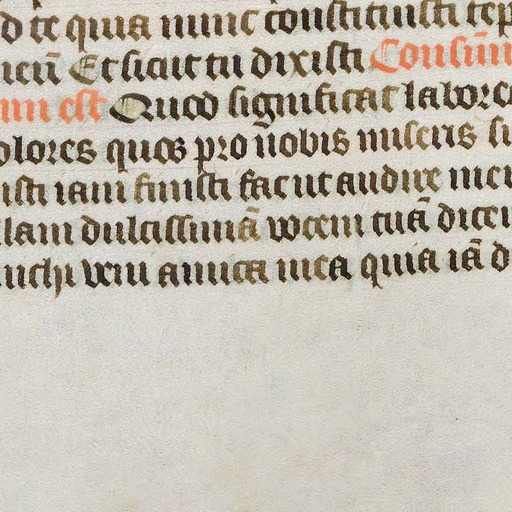 d te quia nunc constituisti tep
meū Et sicut tu dixisti Consūm
um est Quod significat labores
olores quos pro nobis miseris su
isti iam finisti fac ut audire mer
llam dulcissimā vocem tuā dicen
michi veni amica mea quia iā d